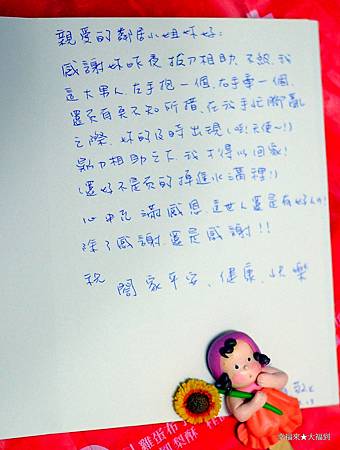 親愛的鄰居小姐妳好:
感謝妳昨夜拔刀相助,不然,我
這大男人,左手抱一個,右手牽一個,
還真有臭不知所措,在我手忙腳亂
之際,妳的及時出現(呼!天使~!)
鼎力相助之下,我才得以回家!
(還好不是真的掉進水溝裡!)
心中充滿感恩,這世人還是有好人的!
除了感謝,還是感謝!!
祝 闔家平安、健康、快樂
敬上
雞蛋布
鳳梨酥
幸福來★大福到